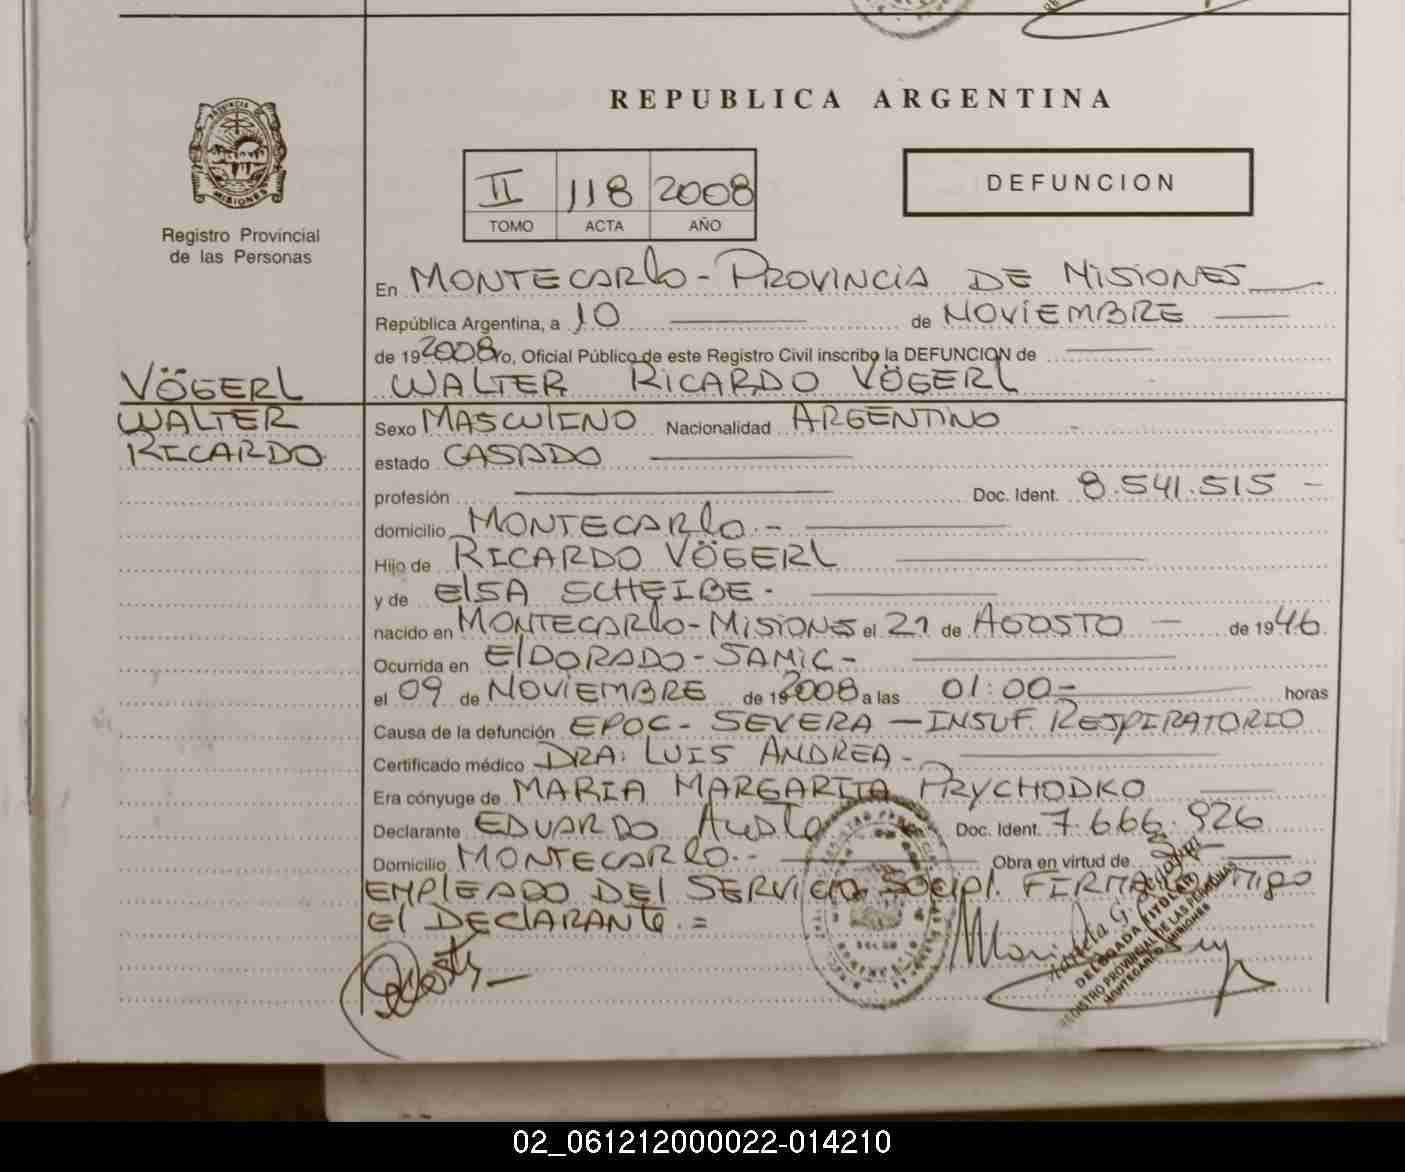 REPUBLICA ARGENTINA
PROVINCIA
MISIONES
Registro Provincial
de las Personas
II 118 2008
TOMO ACTA AÑO
DEFUNCION
En MONTECARlo - PROVINCIA DE MISIONES
República Argentina, a 10 de NOVIEMBRE
de 19 2008 Yo, Oficial Público de este Registro Civil inscribo la DEFUNCION de
VÖGERL WALTER RICARDO VÖGERL
WALTER
RICARDO
Sexo MASCULINO Nacionalidad ARGENTINO
estado CASADO
profesión Doc. Ident. 8.541.515 -
domicilio MONTECARlo.-
Hijo de RICARDO VÖGERL
y de ElSA SCHEIBE -
nacido en MONTECARLO - MISIONES el 21 de AGOSTO de 1946.
Ocurrida en ElDORADO - SAMIC -
el 09 de NOVIEMBRE de 19 2008 a las 01:00- horas
Causa de la defunción EPOC - SEVERA - INSUF. RESPIRATORIO
Certificado médico DRA: LUIS ANDREA -
Era cónyuge de MARIA MARGARITA PRYCHODKO
Declarante EDUARDO Doc. Ident. 7.666.926
Domicilio MONTECARlo.- Obra en virtud de
EMPLEADO DEl SERVICIO SOCIAl. FIRMA
El DEClARANTE.=
DELEGADA TITULAR
REGISTRO PROVINCIAL DE LAS PERSONAS
MONTECARLO MISIONES
02_061212000022-014210